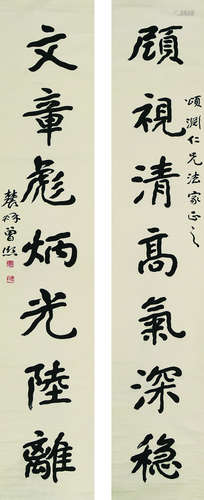 顾視清高氣深稳
頌淵仁兄法家正之
文章彪炳光陸離
農髯曾熙